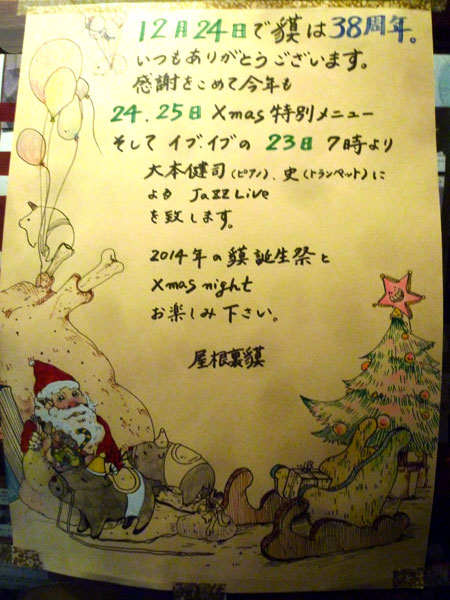 12月24日で貘は38周年。
いつもありがとうございます。
感謝をこめて今年も
24.25日 Xmas特別メニュー
そして イブイブの 23日 7時より
大本健司(ピアノ)、史(トランペット)に
よる Jazz Live
を致します。
2014年の貘誕生祭と
Xmas night
お楽しみ下さい。
屋根裏貘